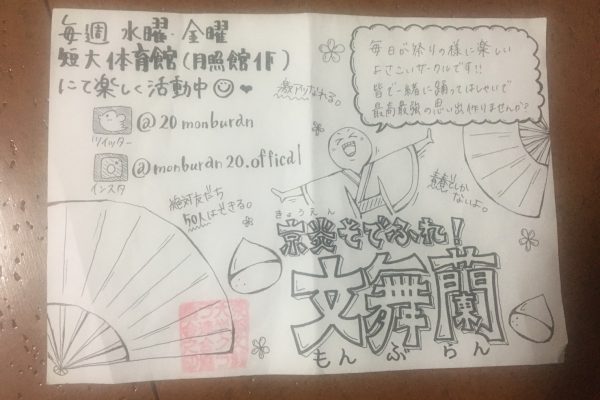 毎週 水曜・金曜
短大体育館(月照館1F)
にて楽しく活動中
ツイッター
@20monburan
インスタ
@monburan20.offical
毎日が祭りの様に楽しい
よさこいサークルです!!
皆で一緒に踊ってはしゃいで
最高最強の思い出作りませんか?
激アツなれる。
青春でしか
ないよ。
絶対友だち
50人はできる。
きょうえん
京炎そでふれ!
文舞蘭
もんぶらん